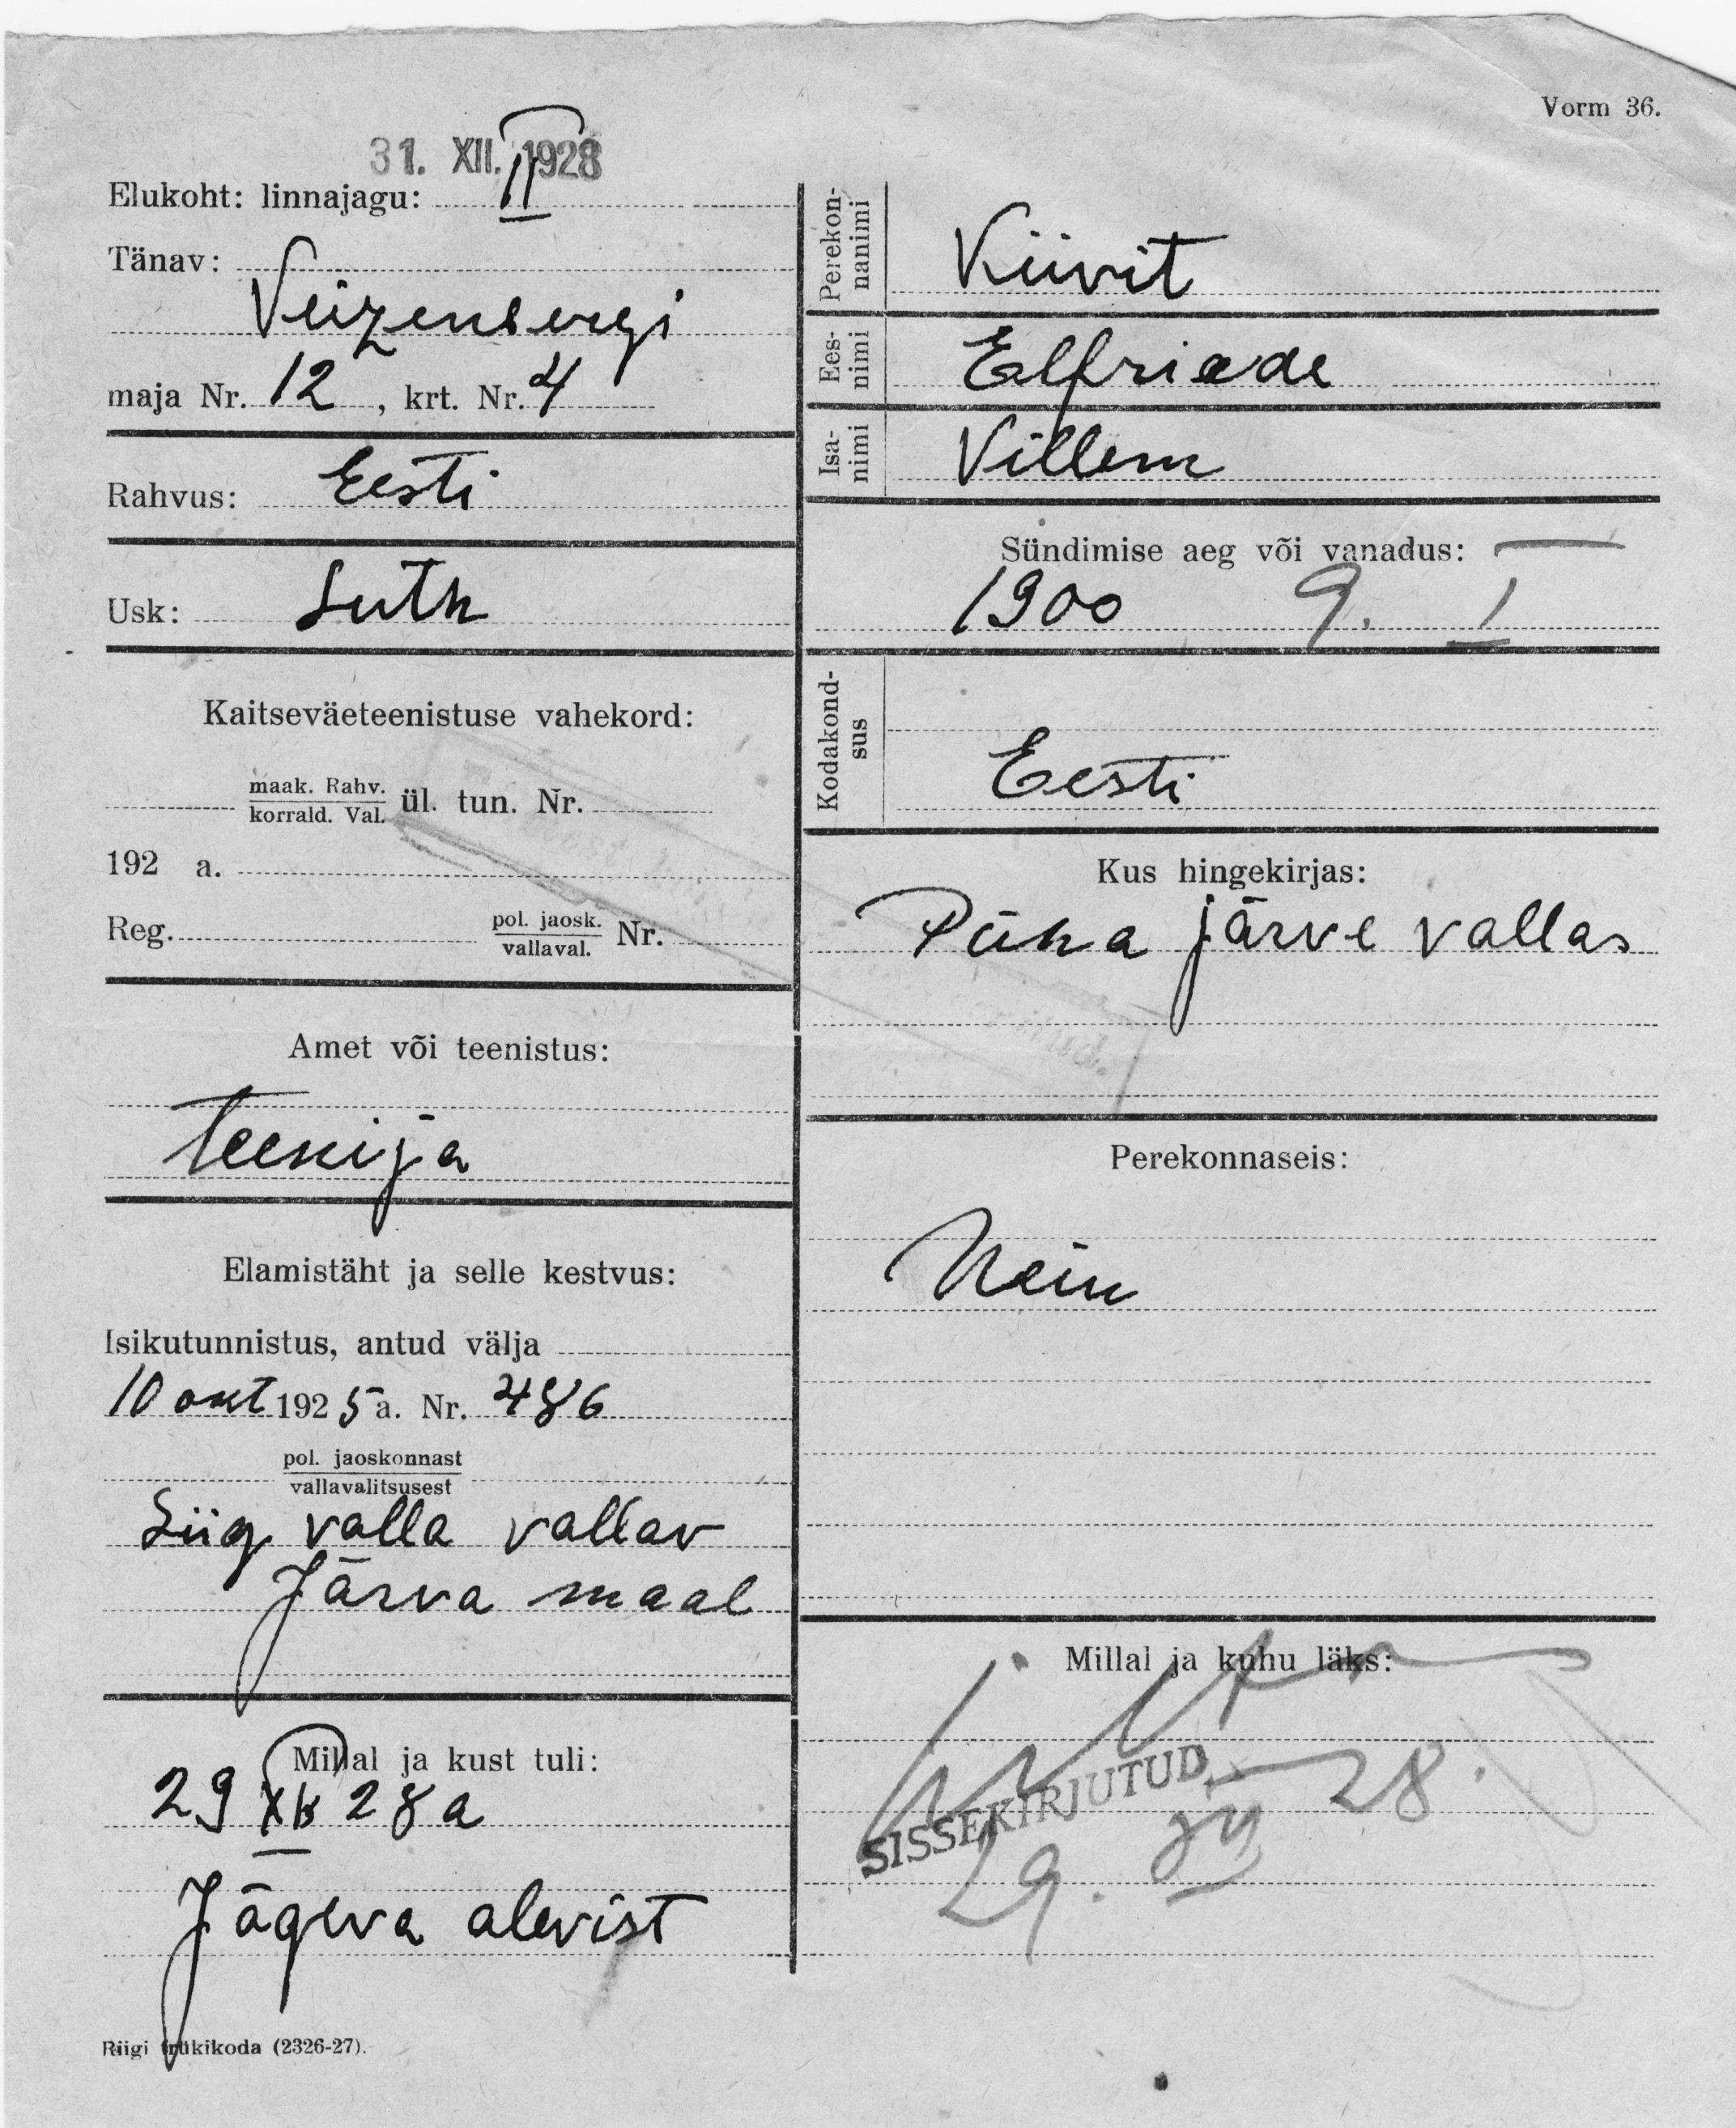 Vorm 36.
31. XII. 1928
Elukoht: linnajagu: II
Tänav:
Veizenbergi
maja Nr. 12, krt. Nr. 4
Rahvus: Eesti
Usk: Luth
Kaitseväeteenistuse vahekord:
maak. Rahv.
korrald. Val. ül. tun. Nr.
192 a.
Reg. pol. jaosk.
vallaval. Nr.
Amet või teenistus:
Teenija
Elamistäht ja selle kestvus:
Isikutunnistus, antud välja
10 okt 1925 a. Nr. 486
pol. jaoskonnast
vallavalitsusest
valla vallav
Järva maal
Millal ja kust tuli:
29 XII 28 a
Jõgeva alevist
Riigi trükikoda (2326-27).
Perekon-
nanimi
Kiivit
Ees-
nimi
Elfriede
Isa-
nimi
Villem
Sündimise aeg või vanadus:
1900 9. I
Kodakond-
sus
Eesti
Kus hingekirjas:
Püha järve vallas
Perekonnaseis:
Neiu
Millal ja kuhu läks:
SISSEKIRJUTUD
29. XII 28.